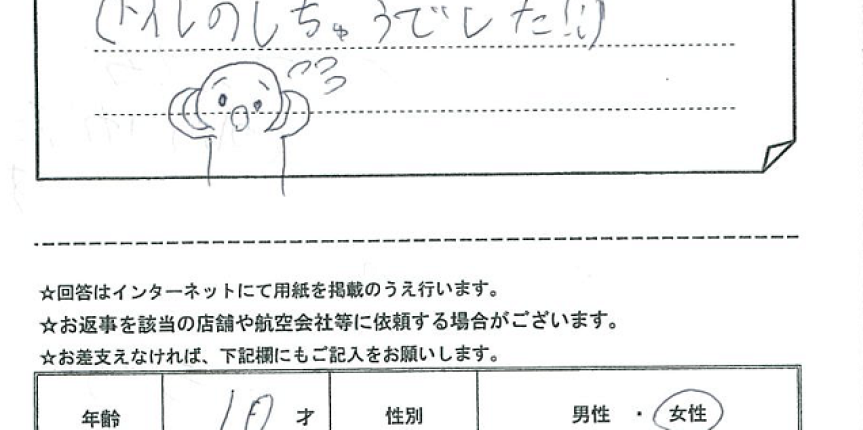 (トイレのしちゅうでした!!)
☆回答はインターネットにて用紙を掲載のうえ行います。
☆お返事を該当の店舗や航空会社等に依頼する場合がございます。
☆お差支えなければ、下記欄にもご記入をお願いします。
年齢 10 才 性別 男性 ・ 女性